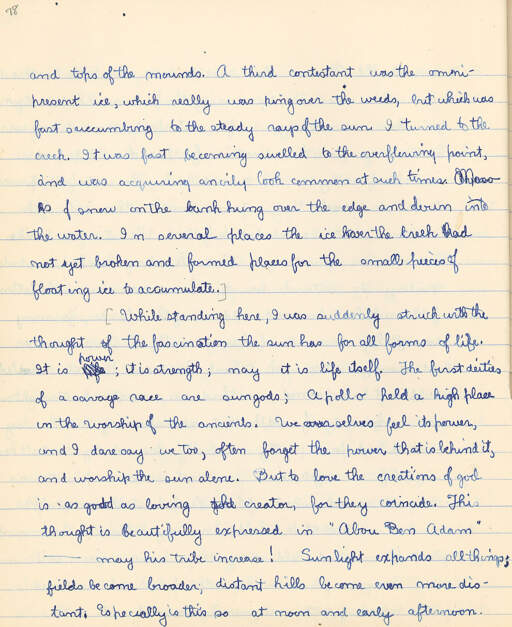 78
and tops of the mounds. A third contestant was the omni-
present ice, which really was king over the weeds, but which was
fast succumbing to the steady rays of the sun. I turned to the
creek. It was fast becoming swelled to the overflowing point,
and was acquiring an oily look common at such times. Mass-
es of snow on the bank hung over the edge and down into
the water. In several places the ice over the creek had
not yet broken and formed places for the small pieces of
floating ice to accumulate.]
[ While standing here, I was suddenly struck with the
thought of the fascination the sun has for all forms of life.
It is power; it is strength; nay it is life itself. The first deities
of a savage race are sungods; Apollo held a high place
in the worship of the ancients. We ourselves feel its power,
and I dare say we too, often forget the power that is behind it,
and worship the sun alone. But to love the creations of god
is as good as loving the creator, for they coincide. This
thought is beautifully expressed in "Abou Ben Adam"
— may his tribe increase! Sunlight expands all things;
fields become broader; distant hills become even more dis-
tant. Especially is this so at noon and early afternoon.